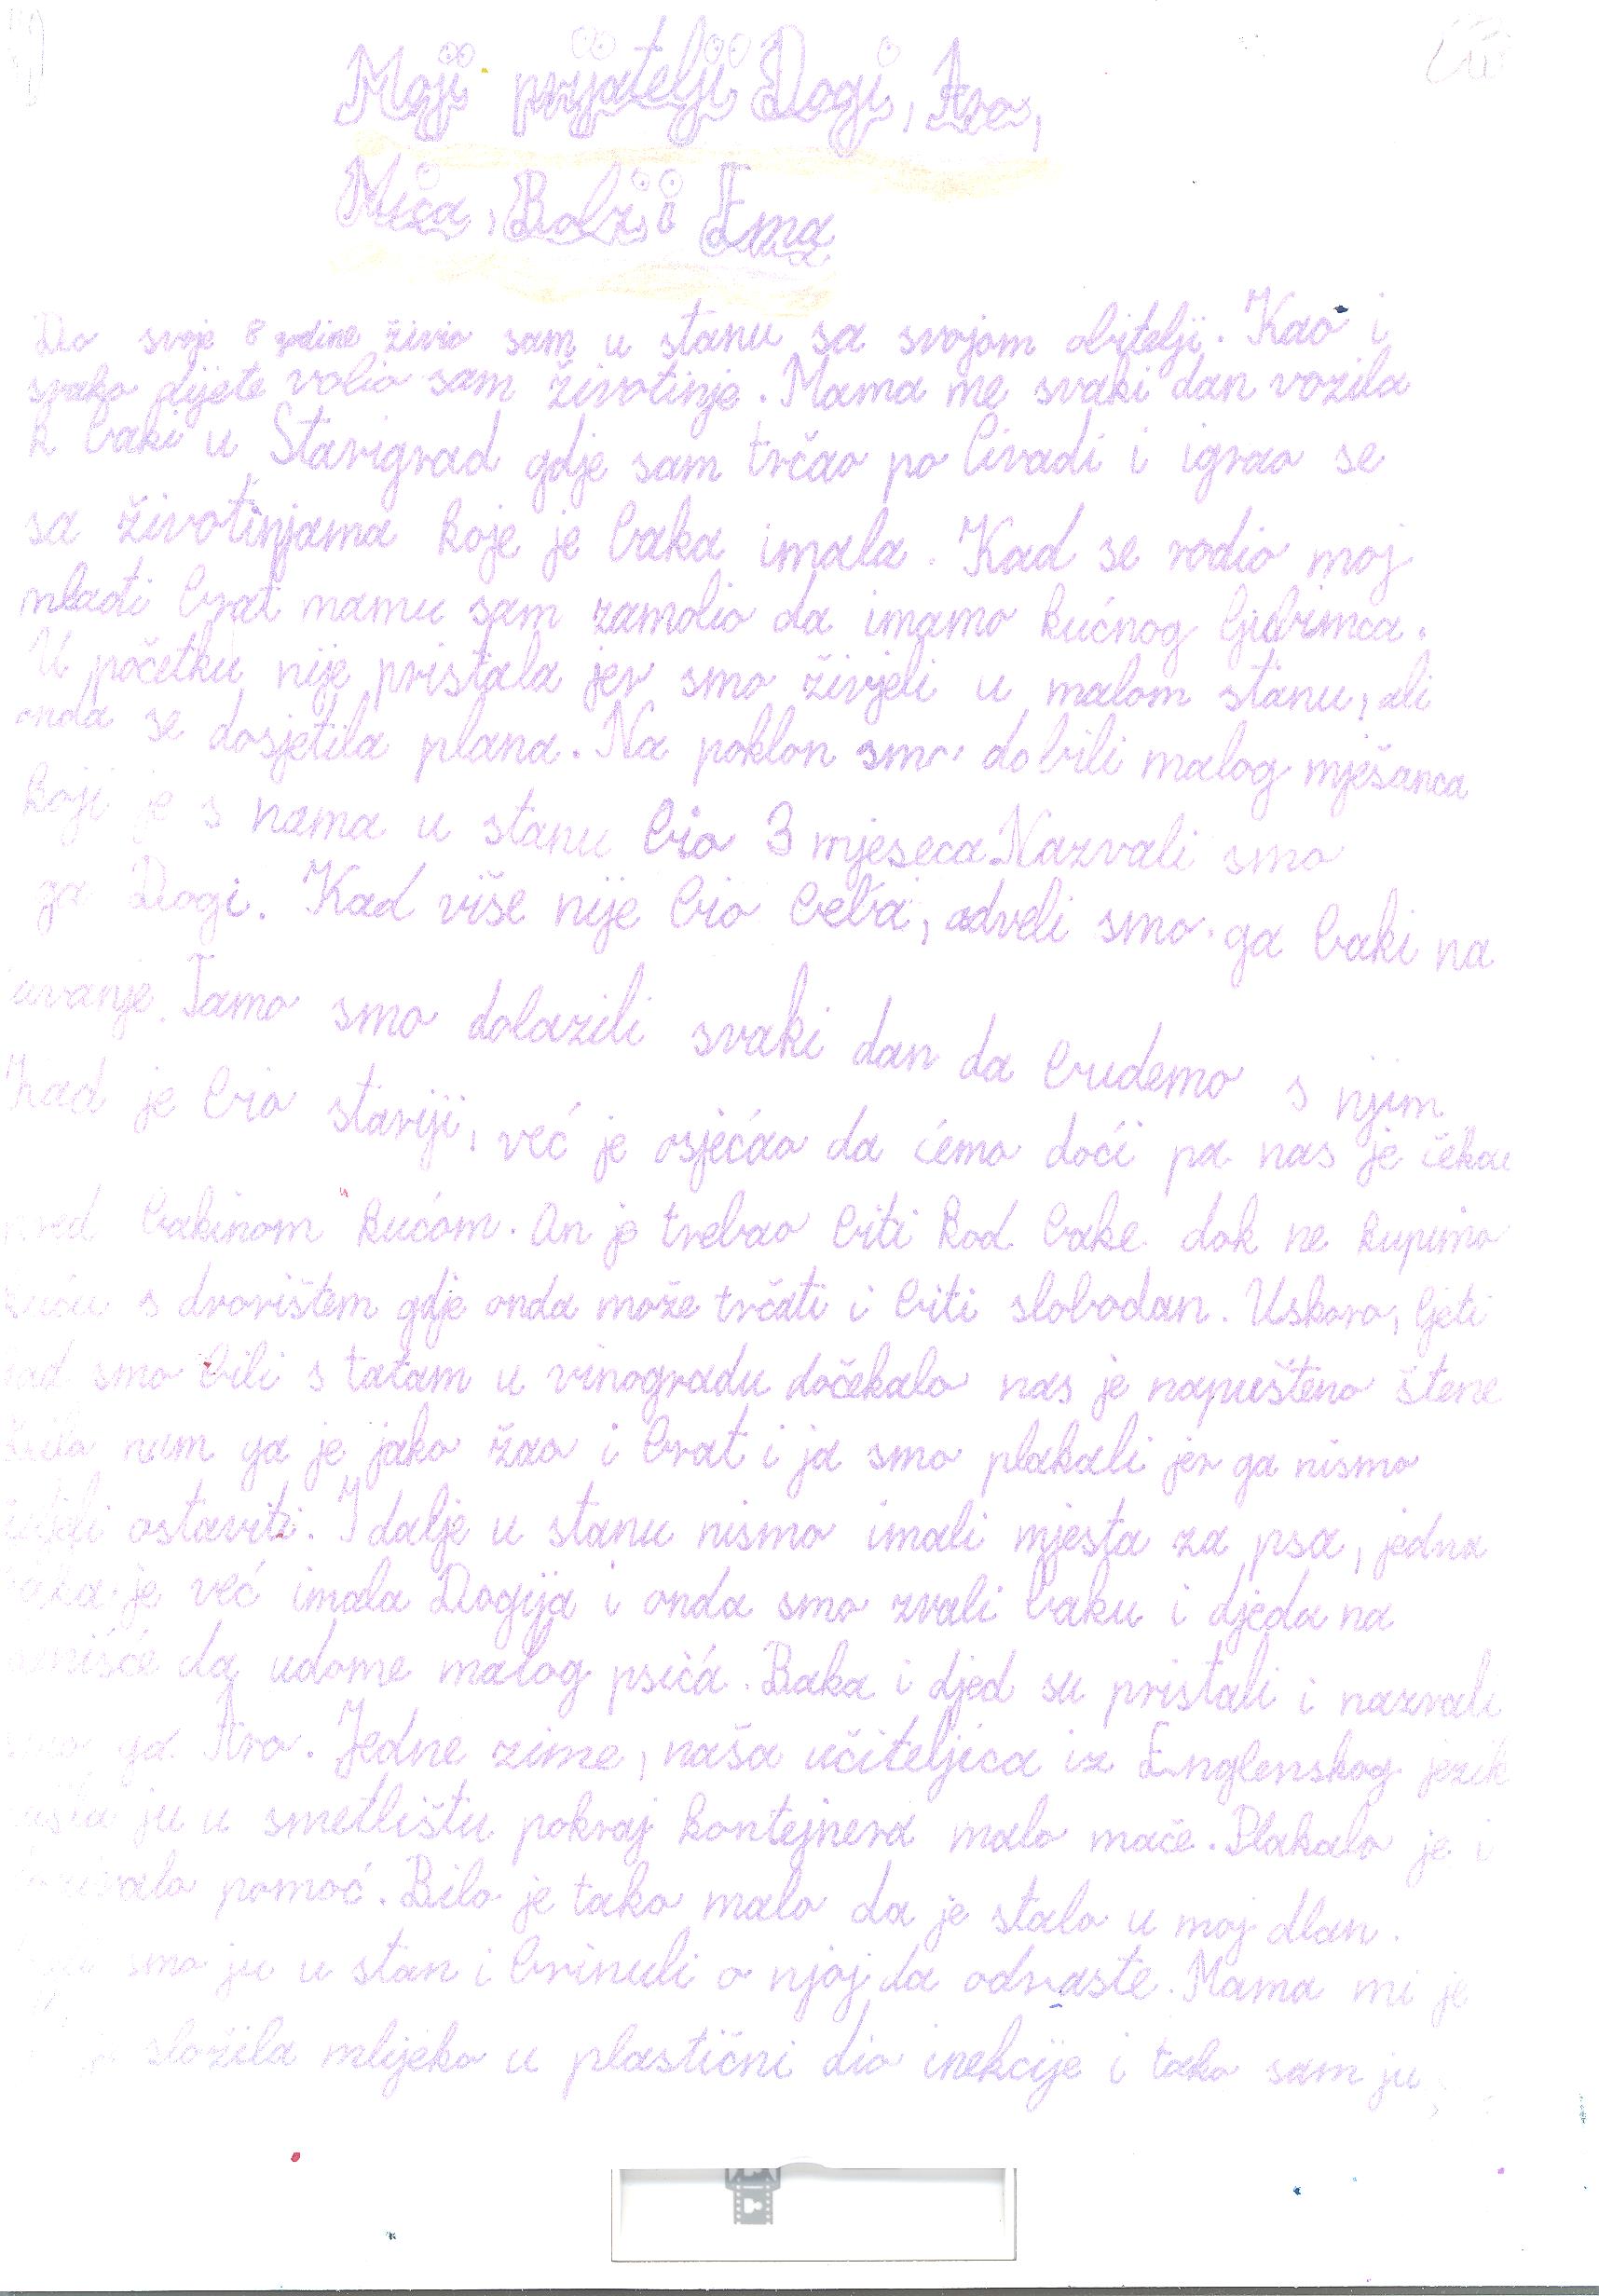 Moji prijatelji Dogi, Aro,
Mica, Bolzi i Ema
Do svoje 8 godine živio sam u stanu sa svojom obitelji. Kao i
svako dijete volio sam životinje. Mama me svaki dan vozila
k baki u Starigrad gdje sam trčao po livadi i igrao se
sa životinjama koje je baka imala. Kad se rodio moj
mlađi brat mamu sam zamolio da imamo kućnog ljubimca.
U početku nije pristala jer smo živjeli u malom stanu, ali
onda se dosjetila plana. Na poklon smo dobili malog mješanca
koji je s nama u stanu bio 3 mjeseca. Nazvali smo
ga Dogi. Kad više nije bio beba, odveli smo ga baki na
uvanje. Tamo smo dolazili svaki dan da budemo s njim
Kad je bio stariji, već je osjećao da ćemo doći pa nas je čekao
pred bakinom kućom. On je trebao biti kod bake dok ne kupimo
kuću s dvorištem gdje onda može trčati i biti slobodan. Uskoro, ljeti
kad smo bili s tatam u vinogradu dočekalo nas je napušteno štene
Bilo nam ga je jako žao i brat i ja smo plakali jer ga nismo
ostaviti. I dalje u stanu nismo imali mjesta za psa, jedna
baka je već imala Dogija i onda smo zvali baku i djeda na
da udome malog psića. Baka i djed su pristali i nazvali
smo ga Aro. Jedne zime, naša učiteljica iz Englenskog jezik
našla ju u smetlištu pokraj kontejnera malo mače. Plakalo je i
pomoć. Bilo je tako malo da je stalo u moj dlan.
smo ju u stan i brinuli o njoj da odraste. Mama mi je
složila mlijeko u plastični dio inekcije i tako sam ju